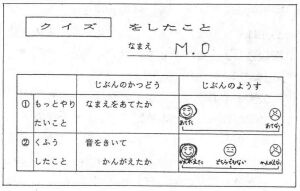 クイズ をしたこと
なまえ M.O
じぶんのかつどう じぶんのようす
① もっとやりたいこと なまえをあてたか
あてた あてない
② くふうしたこと 音をきいてかんがえたか
かんがえた どちらでもない かんがえない